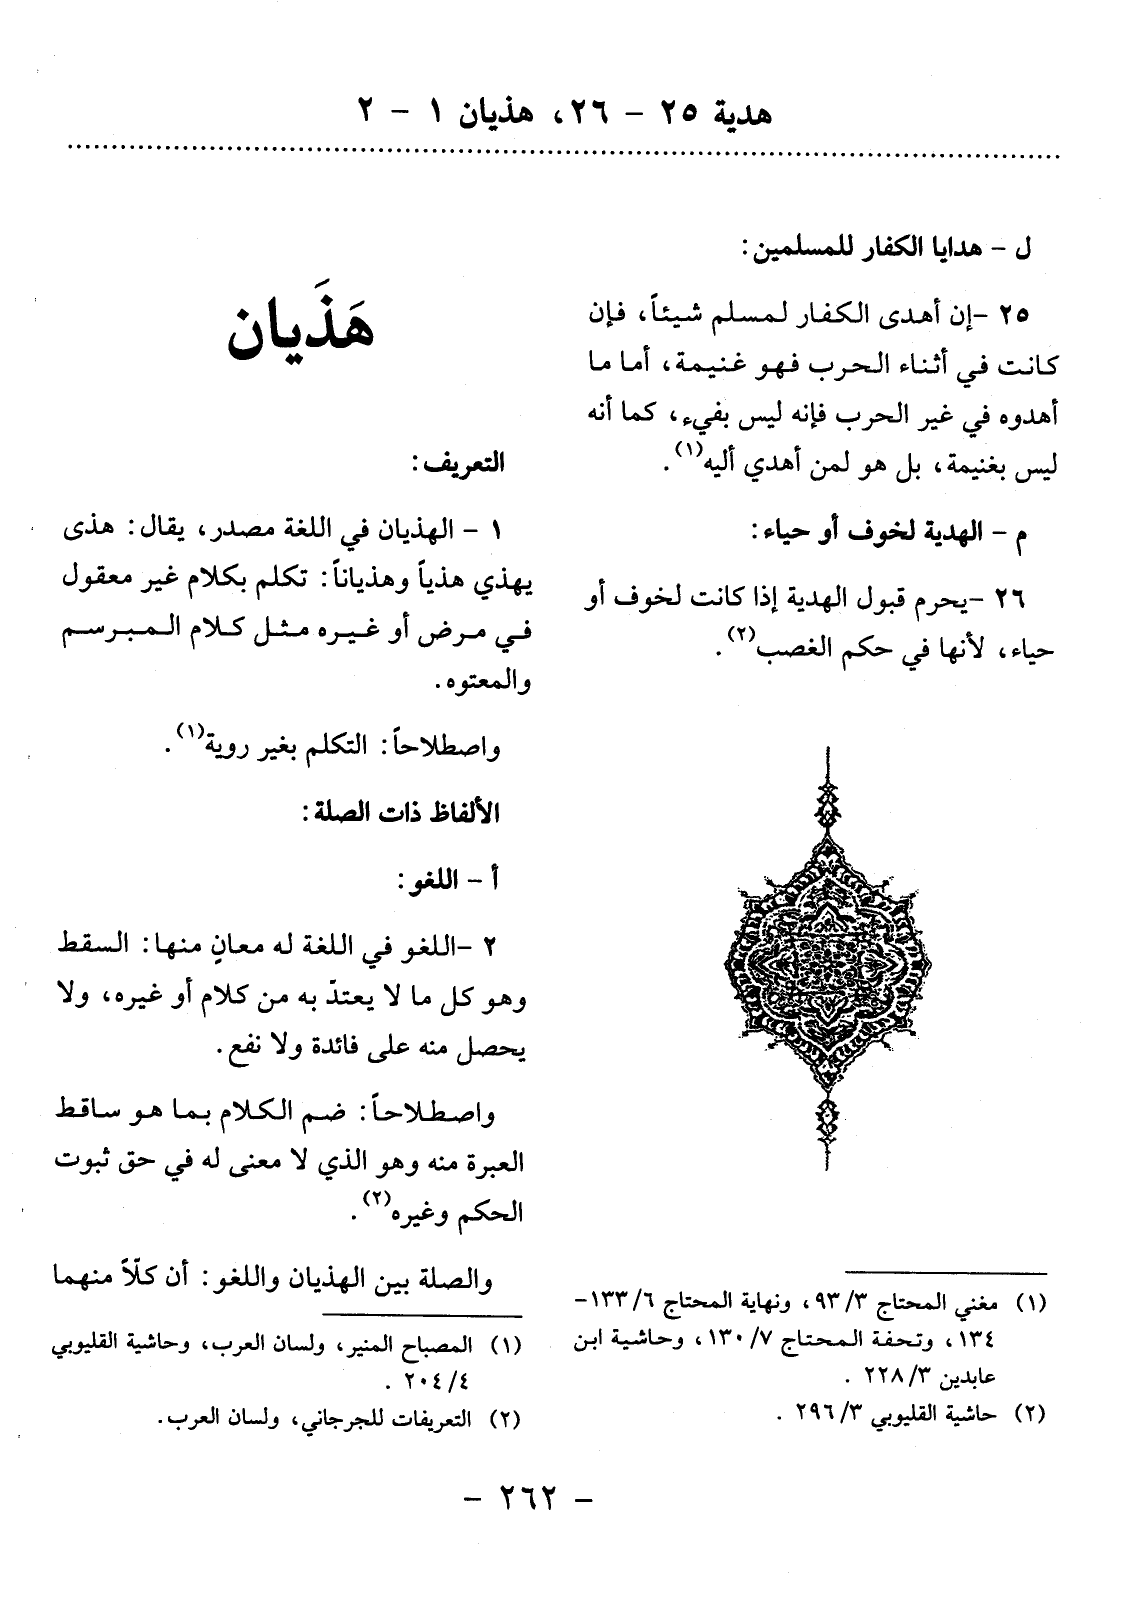 هدية ٢٥ - ٢٦، هذيان ١ - ٢
ل - هدايا الكفار للمسلمين:
٢٥ -إن أهدى الكفار لمسلم شيئاً، فإن
كانت في أثناء الحرب فهو غنيمة، أما ما
أهدوه في غير الحرب فإنه ليس بفيء، كما أنه
ليس بغنيمة، بل هو لمن أهدي أليه(١).
م - الهدية لخوف أو حياء:
٢٦ -يحرم قبول الهدية إذا كانت لخوف أو
حياء، لأنها في حكم الغصب(٢).
(١) مغني المحتاج ٩٣/٣، ونهاية المحتاج ١٣٣/٦-
١٣٤، وتحفة المحتاج ١٣٠/٧، وحاشية ابن
عابدين ٢٢٨/٣ .
(٢) حاشية القليوبي ٢٩٦/٣ .
هَذَيان
التعريف:
١ - الهذيان في اللغة مصدر، يقال: هذى
يهذي هذياً وهذياناً: تكلم بكلام غير معقول
في مرض أو غيره مثل كلام المبرسم
والمعتوه.
واصطلاحاً: التكلم بغير روية(١).
الألفاظ ذات الصلة:
أ - اللغو:
٢ -اللغو في اللغة له معانٍ منها: السقط
وهو كل ما لا يعتدّ به من كلام أو غيره، ولا
يحصل منه على فائدة ولا نفع.
واصطلاحاً: ضم الكلام بما هو ساقط
العبرة منه وهو الذي لا معنى له في حق ثبوت
الحكم وغيره(٢).
والصلة بين الهذيان واللغو: أن كلّاً منهما
(١) المصباح المنير، ولسان العرب، وحاشية القليوبي
٢٠٤/٤ .
(٢) التعريفات للجرجاني، ولسان العرب.
- ٢٦٢ -